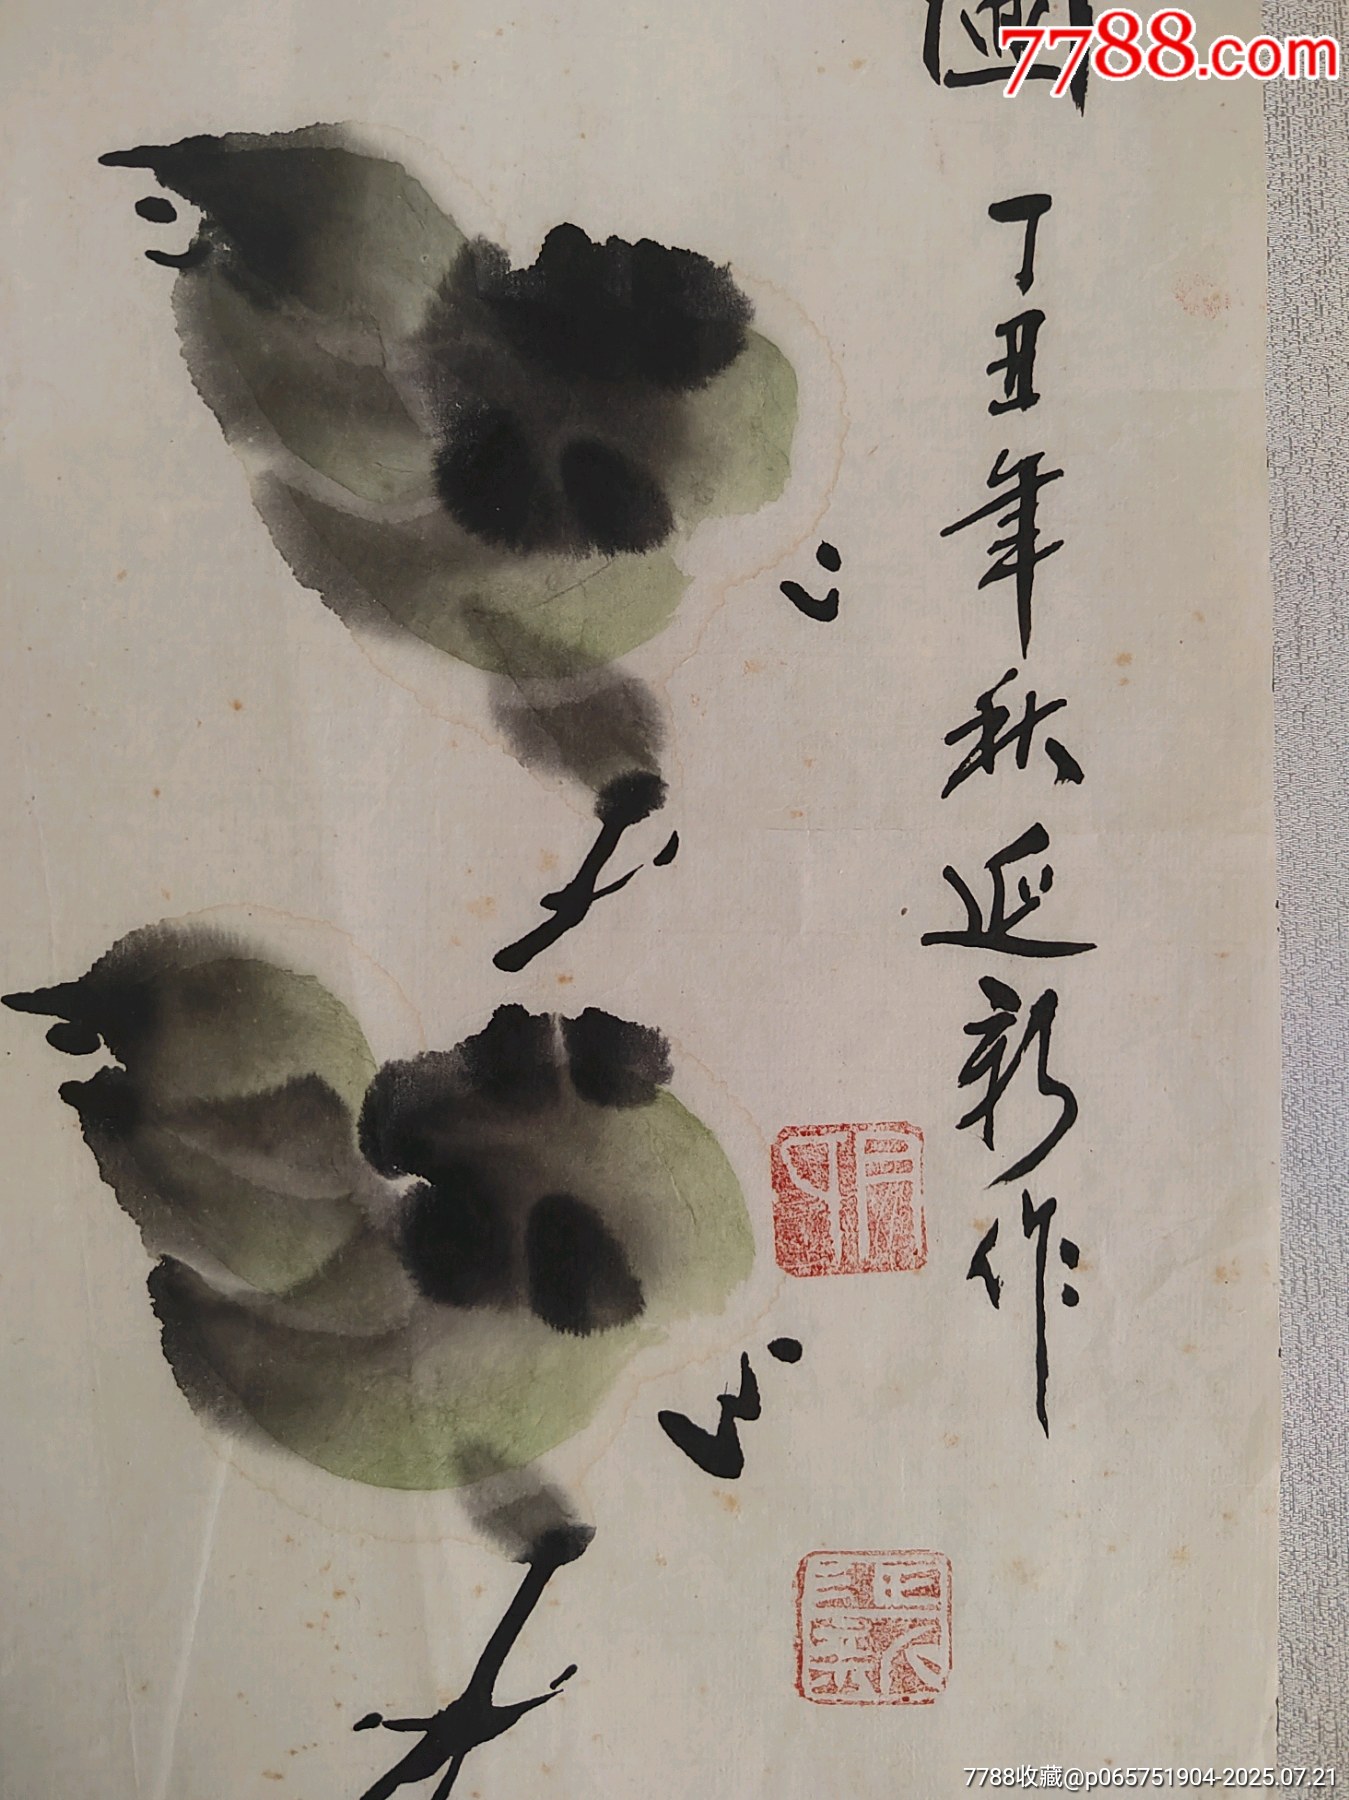 7788.com
圖
丁丑年秋延新作
7788收藏@p065751904-2025.07.21